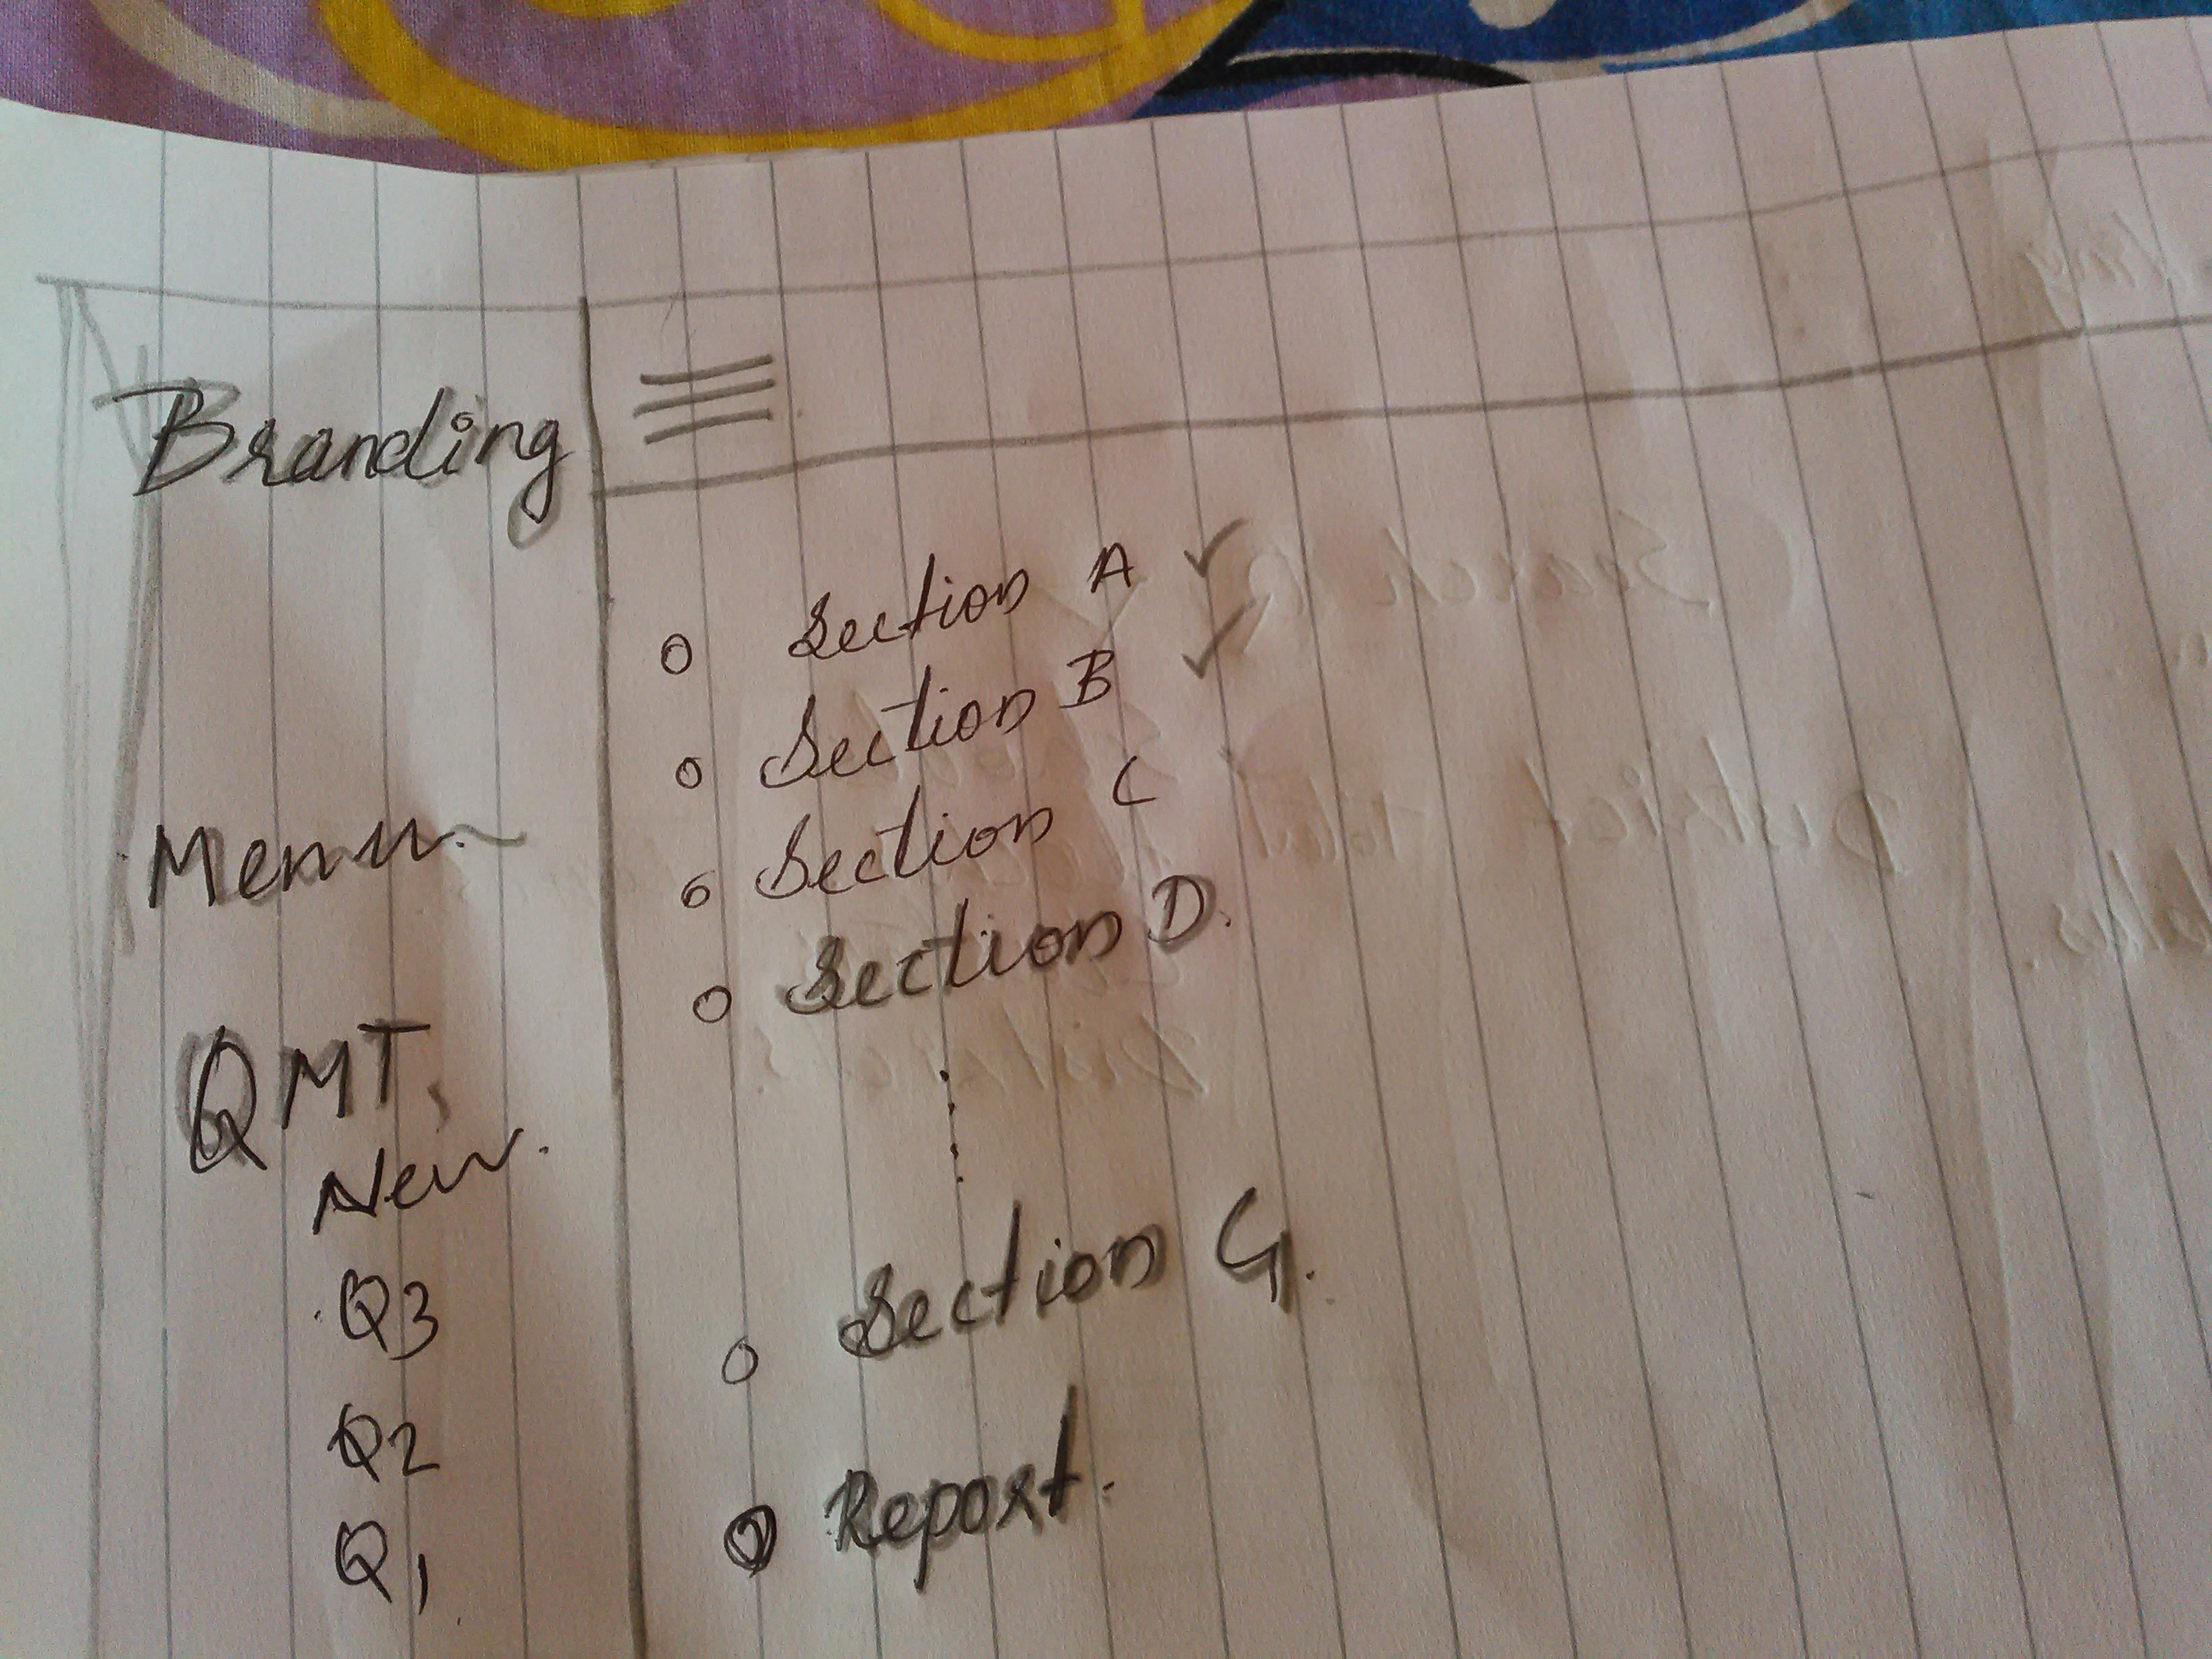 Branding
Menu.
QMT
New.
Q3
Q2
Q1
Section A ✓
Section B ✓
Section C
Section D.
Section G.
Report.